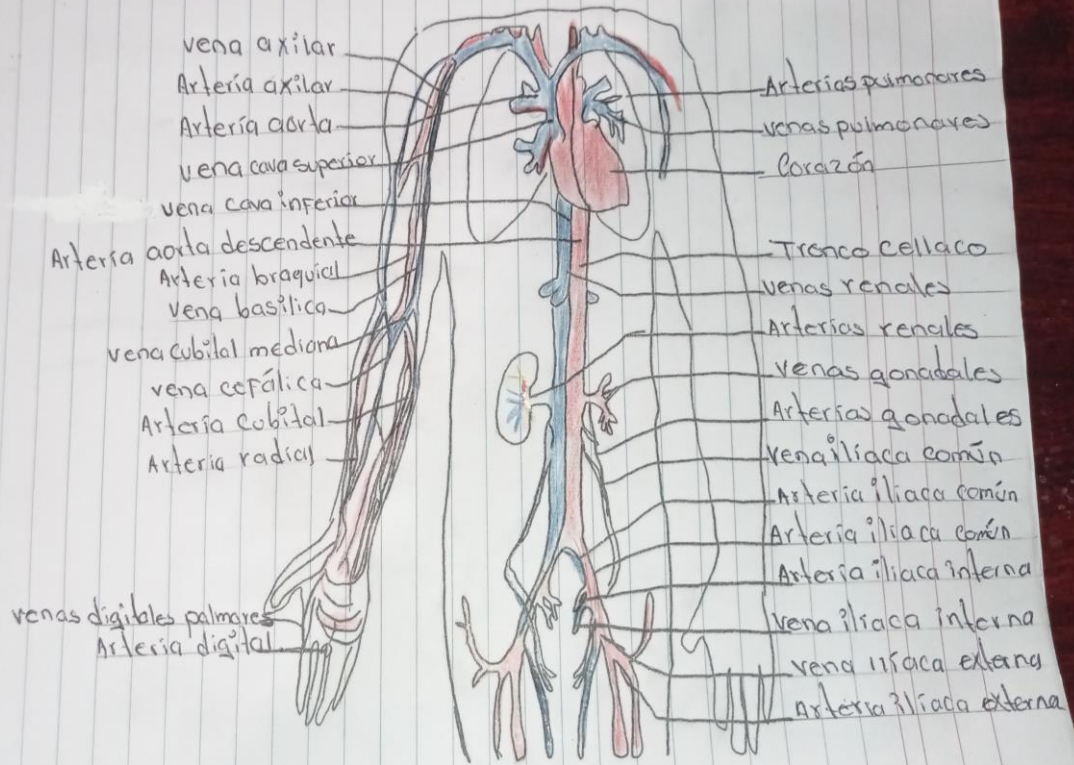 vena axilar
Artería axilar
Artería aorta
vena cava superior
vena cava inferior
Artería aorta descendente
Artería braquial
vena basílica
vena cubital mediana
vena cefálica
Artería cubital
Arteria radial
venas digitales palmares
Arteria digital
Arterias pulmonares
venas pulmonares
Corazón
Tronco cellaco
venas renales
Arterias renales
venas gonadales
Arterias gonadales
vena ilíaca común
Arteria iliaca común
Arteria iliaca común
Arteria iliaca interna
vena iliaca interna
vena ilíaca externa
Arteria ilíaca externa